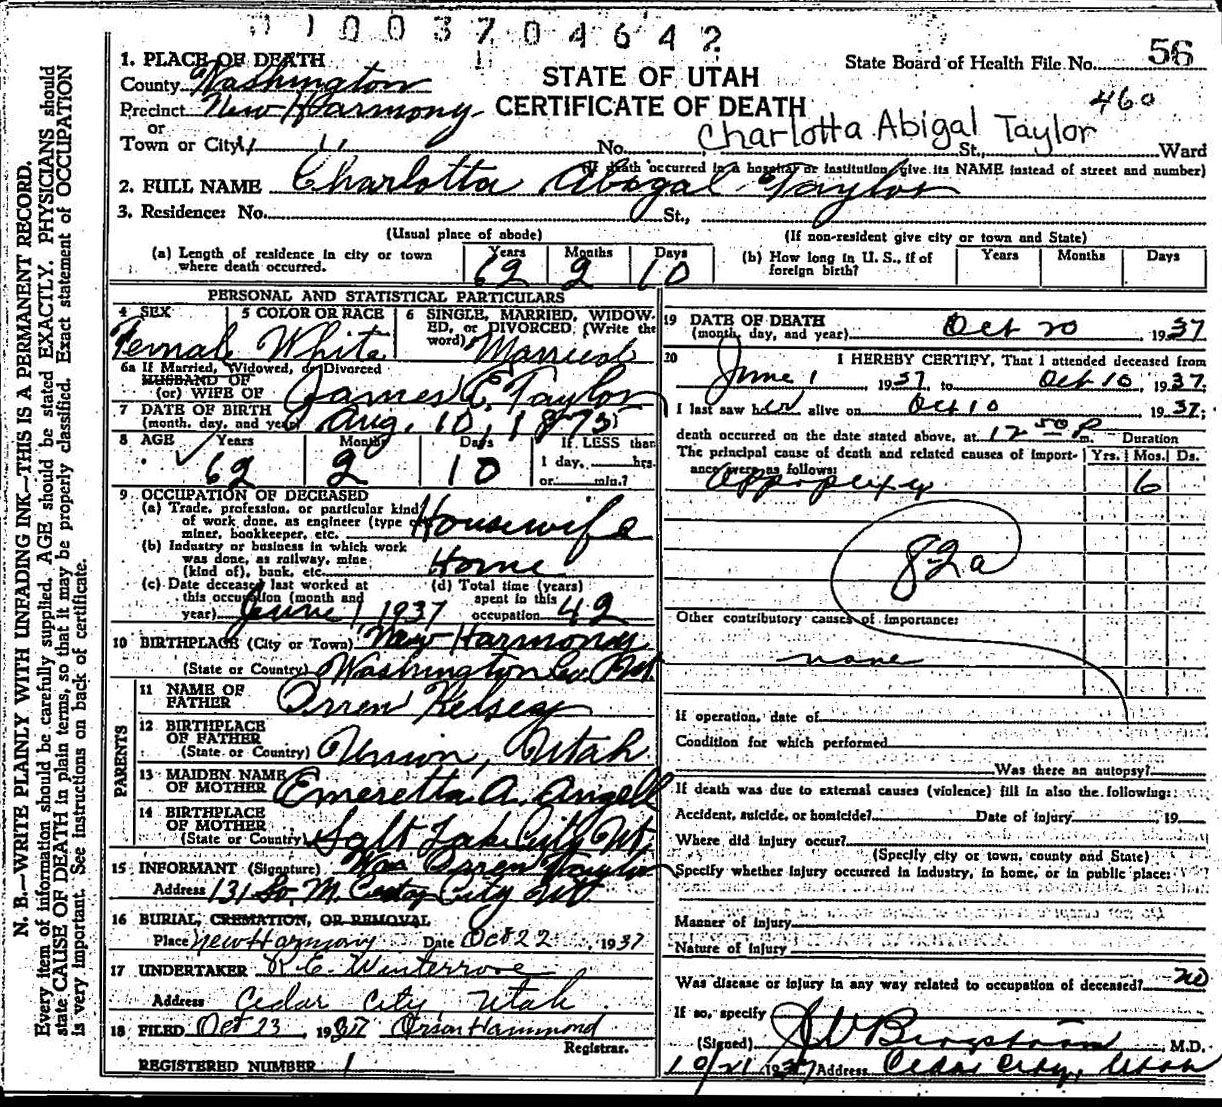 11003704642
1. PLACE OF DEATH
County Washington
STATE OF UTAH
State Board of Health File No. 56
Precinct New Harmony
CERTIFICATE OF DEATH
460
or
Town or City " "
No. Charlotta Abigal Taylor St., Ward
(If death occurred in a hospital or institution, give its NAME instead of street and number)
2. FULL NAME Charlotta Abigal Taylor
3. Residence: No. St.,
(Usual place of abode) (If non-resident give city or town and State)
(a) Length of residence in city or town where death occurred. Years 62 Months 2 Days 10
(b) How long in U. S., if of foreign birth? Years Months Days
PERSONAL AND STATISTICAL PARTICULARS
4 SEX Female
5 COLOR OR RACE White
6 SINGLE, MARRIED, WIDOWED, or DIVORCED (Write the word) Married
6a If Married, Widowed, or Divorced
HUSBAND OF
(or) WIFE OF James E. Taylor
7 DATE OF BIRTH
(month, day, and year) Aug. 10, 1875
8 AGE Years 62 Months 2 Days 10 If LESS than
1 day, hrs.
or min.?
9 OCCUPATION OF DECEASED
(a) Trade, profession, or particular kind
of work done, as engineer (type of
miner, bookkeeper, etc. Housewife
(b) Industry or business in which work
was done, as railway, mine
(kind of), bank, etc. Home
(c) Date deceased last worked at
this occupation (month and
year) June 1 1937
(d) Total time (years)
spent in this
occupation 42
10 BIRTHPLACE (City or Town) New Harmony
(State or Country) Washington Co. Ut.
PARENTS
11 NAME OF
FATHER Orren Kelsey
12 BIRTHPLACE
OF FATHER
(State or Country) Union, Utah
13 MAIDEN NAME
OF MOTHER Emeretta A. Angell
14 BIRTHPLACE
OF MOTHER
(State or Country) Salt Lake City Ut.
15 INFORMANT (Signature) Wm Orren Taylor
Address 131 So. M. Cedar City Ut
16 BURIAL, CREMATION, OR REMOVAL
Place New Harmony Date Oct 22, 1937
17 UNDERTAKER
Address Cedar City Utah
18 FILED Oct 23 1937 Orson Hammond
Registrar.
REGISTERED NUMBER 1
19 DATE OF DEATH
(month, day, and year) Oct 20 1937
20 I HEREBY CERTIFY, That I attended deceased from
June 1 1937, to Oct 10, 1937.
I last saw her alive on Oct 10 1937;
death occurred on the date stated above, at 12 50 P m. Duration
The principal cause of death and related causes of importance were as follows: Yrs. Mos. Ds.
Appoplexy 6
82a
Other contributory causes of importance:
none
If operation, date of
Condition for which performed
Was there an autopsy?
If death was due to external causes (violence) fill in also the following:
Accident, suicide, or homicide? Date of injury 19
Where did injury occur?
(Specify city or town, county and State)
Specify whether injury occurred in industry, in home, or in public place:
Manner of injury
Nature of injury
Was disease or injury in any way related to occupation of deceased? no
If so, specify
(Signed) Bergstrom, M.D.
10/21, 1937 Address Cedar City, Utah
N. B.—WRITE PLAINLY WITH UNFADING INK—THIS IS A PERMANENT RECORD.
Every item of information should be carefully supplied. AGE should be stated EXACTLY. PHYSICIANS should
state CAUSE OF DEATH in plain terms, so that it may be properly classified. Exact statement of OCCUPATION
is very important. See instructions on back of certificate.